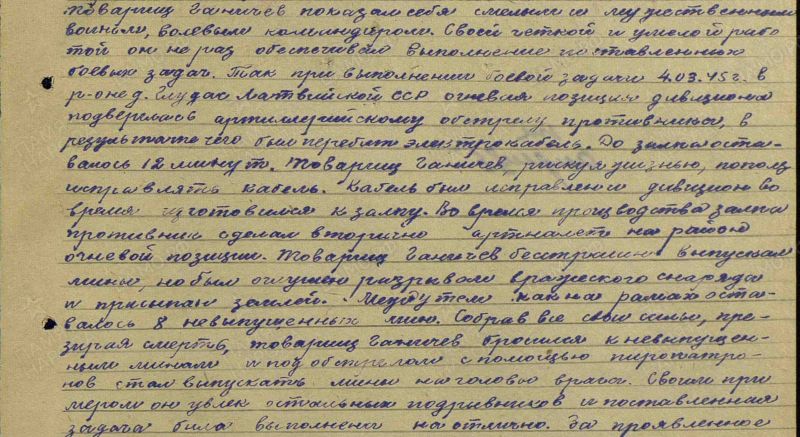 Товарищ Ганичев показал себя смелым и мужественным
воином, волевым командиром. Своей четкой и умелой рабо-
той он не раз обеспечивал выполнение поставленных
боевых задач. Так при выполнении боевой задачи 4.03.45 г. в
р-оне д. Глудас Латвийской ССР огневая позиция дивизиона
подверглась артиллерийскому обстрелу противника, в
результате чего был перебит электрокабель. До залпа оста-
валось 12 минут. Товарищ Ганичев, рискуя жизнью, пополз
исправлять кабель. Кабель был исправлен и дивизион во
время изготовился к залпу. Во время производства залпа
противник сделал вторично артналет на район
огневой позиции. Товарищ Ганичев бесстрашно выпускал
мины, но был оглушен разрывом вражеского снаряда
и присыпан землей. Между тем как на рамах оста-
валось 8 невыпущенных мин. Собрав все свои силы, пре-
зирая смерть, товарищ Ганичев бросился к невыпущен-
ным минам и под обстрелом с помощью пиропатро-
нов стал выпускать мины на голову врага. Своим при
мером он увлек остальных подрывников и поставленная
задача была выполнена на отлично. За проявленное